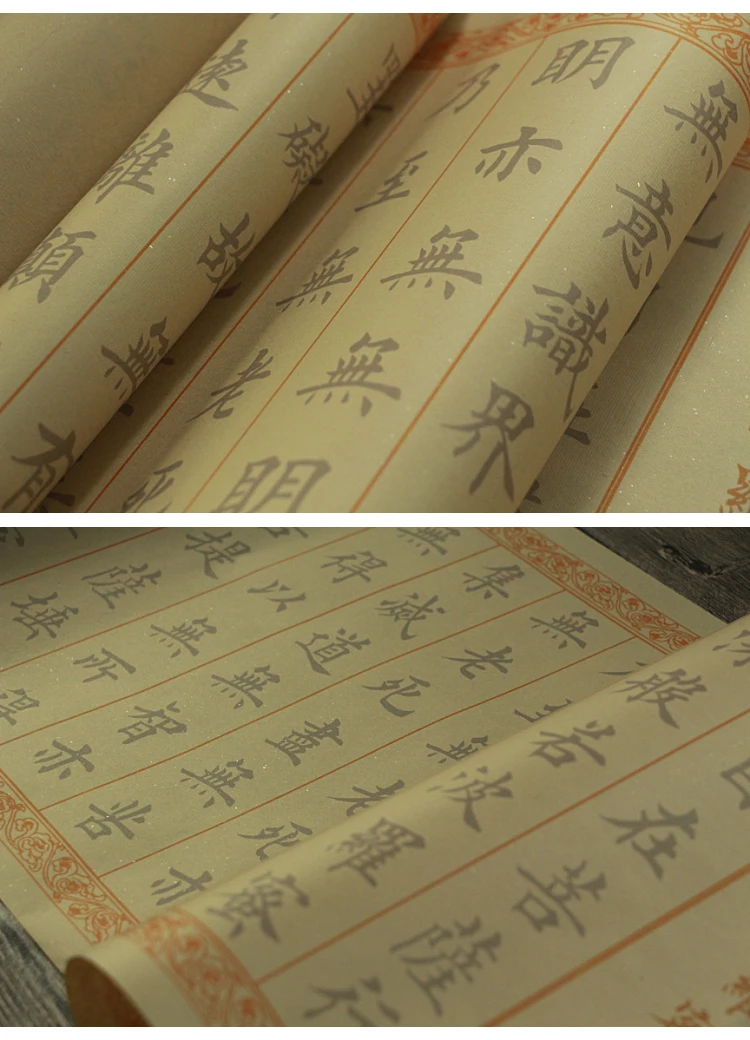 無意識界
明亦無無明
乃至無老死
罣礙故無有
遠離顛
在菩薩行
般若波羅蜜
至無老死亦
無老死盡無苦
集滅道無智亦
無得以無所得
菩提薩埵